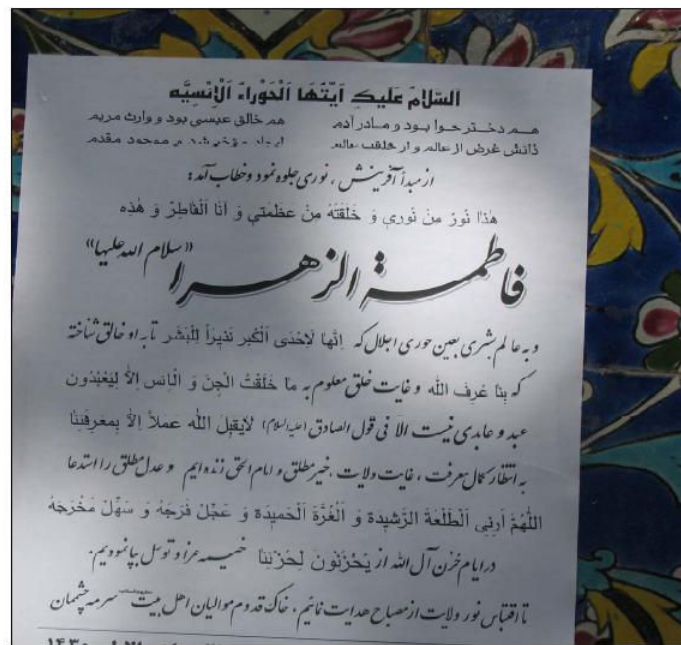 السّلامُ عَلَيكِ اَيَّتُهَا الْحَوْراءُ الْاِنْسِيَّه
هـم دختـر حوا بـود و مـادر آدم هم خالق عیسی بود و وارث مریم
ذاتش غرض از عالم و از خلقت عالم موجود مقدم
از مبدأ آفرینش ، نوری جلوه نمود و خطاب آمد :
هٰذا نُورٌ مِنْ نُوري وَ خَلَقْتَهُ مِنْ عَظَمَتي وَ اَنَا الْفاطِرُ وَ هٰذِه
فاطمة الزهـرا «سلام الله علیها»
و به عالم بشری بعین حوری اجلال که اِنَّها لَاِحْدَى الْكُبَرِ نَذيراً لِلْبَشَر تا به او خالق شناخته
که بِنا عُرِفَ الله و غایت خلق معلوم به ما خَلَقْتُ الْجِنَ وَ الْاِنْسَ اِلاّ لِيَعْبُدُون
عبد و عابدی نیست الاّ فی قول الصادق (علیه السلام) لايَقْبَلُ الله عَمَلاً اِلاّ بِمَعرِفَتِنا
به انتظار کمال معرفت ، غایت ولایت ، خیر مطلق و امام الحق زنده ایم و عدل مطلق را استدعا
اَللّٰهُمَّ اَرِنِي الْطَّلْعَةَ الرَّشيدَة وَ الْغُرَّةَ الْحَميدَة وَ عَجِّلْ فَرَجَهُ وَ سَهِّلْ مَخْرَجَهُ
در ایام حُزن آل الله از یَحْزَنُونَ لِحُزْنِنا خیمه عزا و توسل بپا نمودیم .
تا اقتباس نور ولایت از مصباح هدایت نمائیم ، خاک قدوم موالیان اهل بیت سرمه چشمان